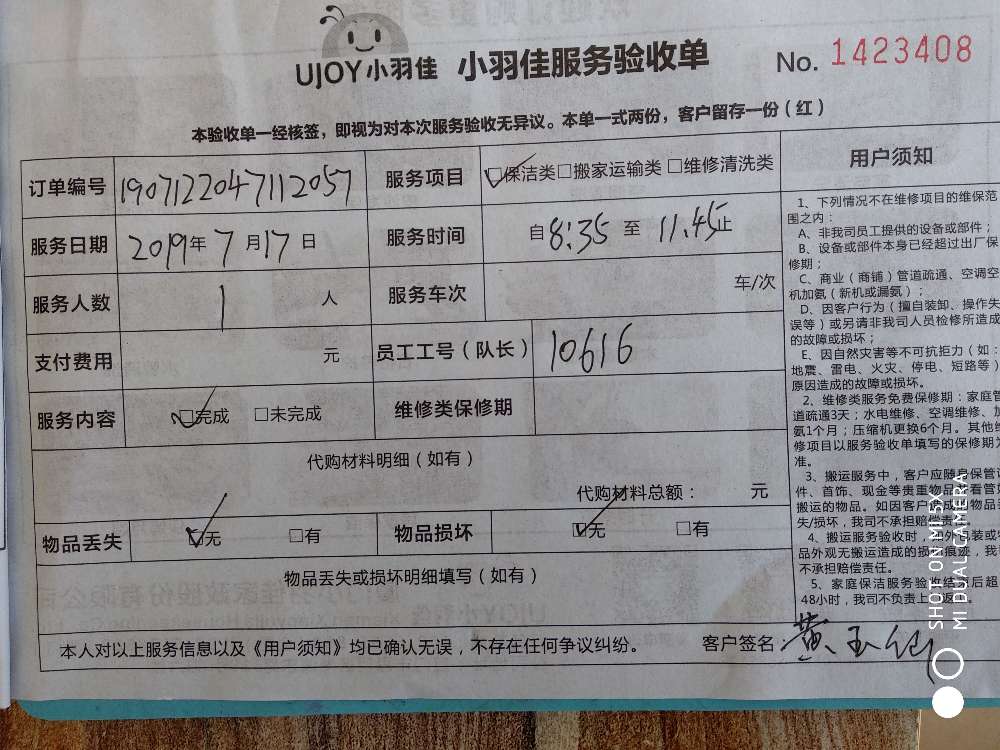 UJOY小羽佳 小羽佳服务验收单 No. 1423408
本验收单一经核签，即视为对本次服务验收无异议。本单一式两份，客户留存一份（红）
订单编号 1907122047112057 服务项目 ☑保洁类□搬家运输类□维修清洗类
服务日期 2019年7月17日 服务时间 自8:35至11.45止
服务人数 1人 服务车次 车/次
支付费用 元 员工工号（队长） 10616
服务内容 ☑完成 □未完成 维修类保修期
代购材料明细（如有）
代购材料总额： 元
物品丢失 ☑无 □有 物品损坏 ☑无 □有
物品丢失或损坏明细填写（如有）
本人对以上服务信息以及《用户须知》均已确认无误，不存在任何争议纠纷。 客户签名：黄玉
用户须知
1、下列情况不在维修项目的维保范
围之内：
A、非我司员工提供的设备或部件；
B、设备或部件本身已经超过出厂保
修期；
C、商业（商铺）管道疏通、空调空
机加氨（新机或漏氨）；
D、因客户行为（擅自装卸、操作失
误等）或另请非我司人员检修所造成
的故障或损坏；
E、因自然灾害等不可抗拒力（如：
地震、雷电、火灾、停电、短路等）
原因造成的故障或损坏。
2、维修类服务免费保修期：家庭管
道疏通3天；水电维修、空调维修、加
氨1个月；压缩机更换6个月。其他维
修项目以服务验收单填写的保修期为
准。
3、搬运服务中，客户应随身保管证
件、首饰、现金等贵重物品并看管好
搬运的物品。如因客户造成的物品丢
失/损坏，我司不承担赔偿责任。
4、搬运服务验收时，包装或物
品外观无搬运造成的损坏痕迹，我司
不承担赔偿责任。
5、家庭保洁服务验收结束后超
48小时，我司不负责上门返工
SHOT ON MI 5X
MI DUAL CAMERA